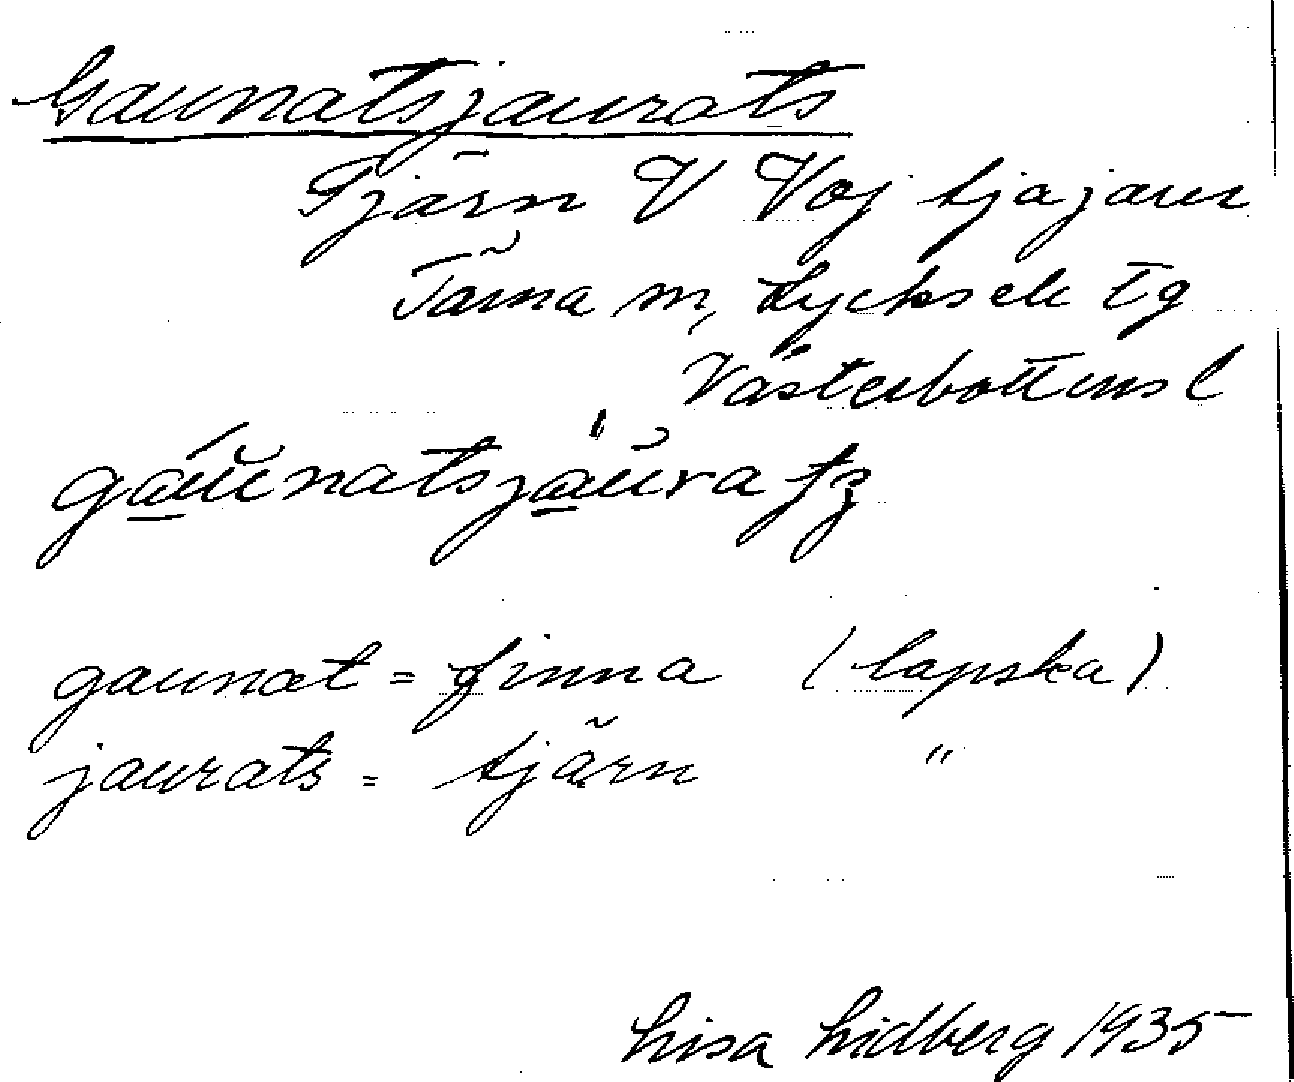 Gaunatsjaurats
Tjärn V Vojtjajaur
Tärna sn, Lycksele tg
Västerbottens l
gáu̯natsjau̯ratz
gaunat = finna (lapska)
jaurats = tjärn "
Lisa Lidberg 1935